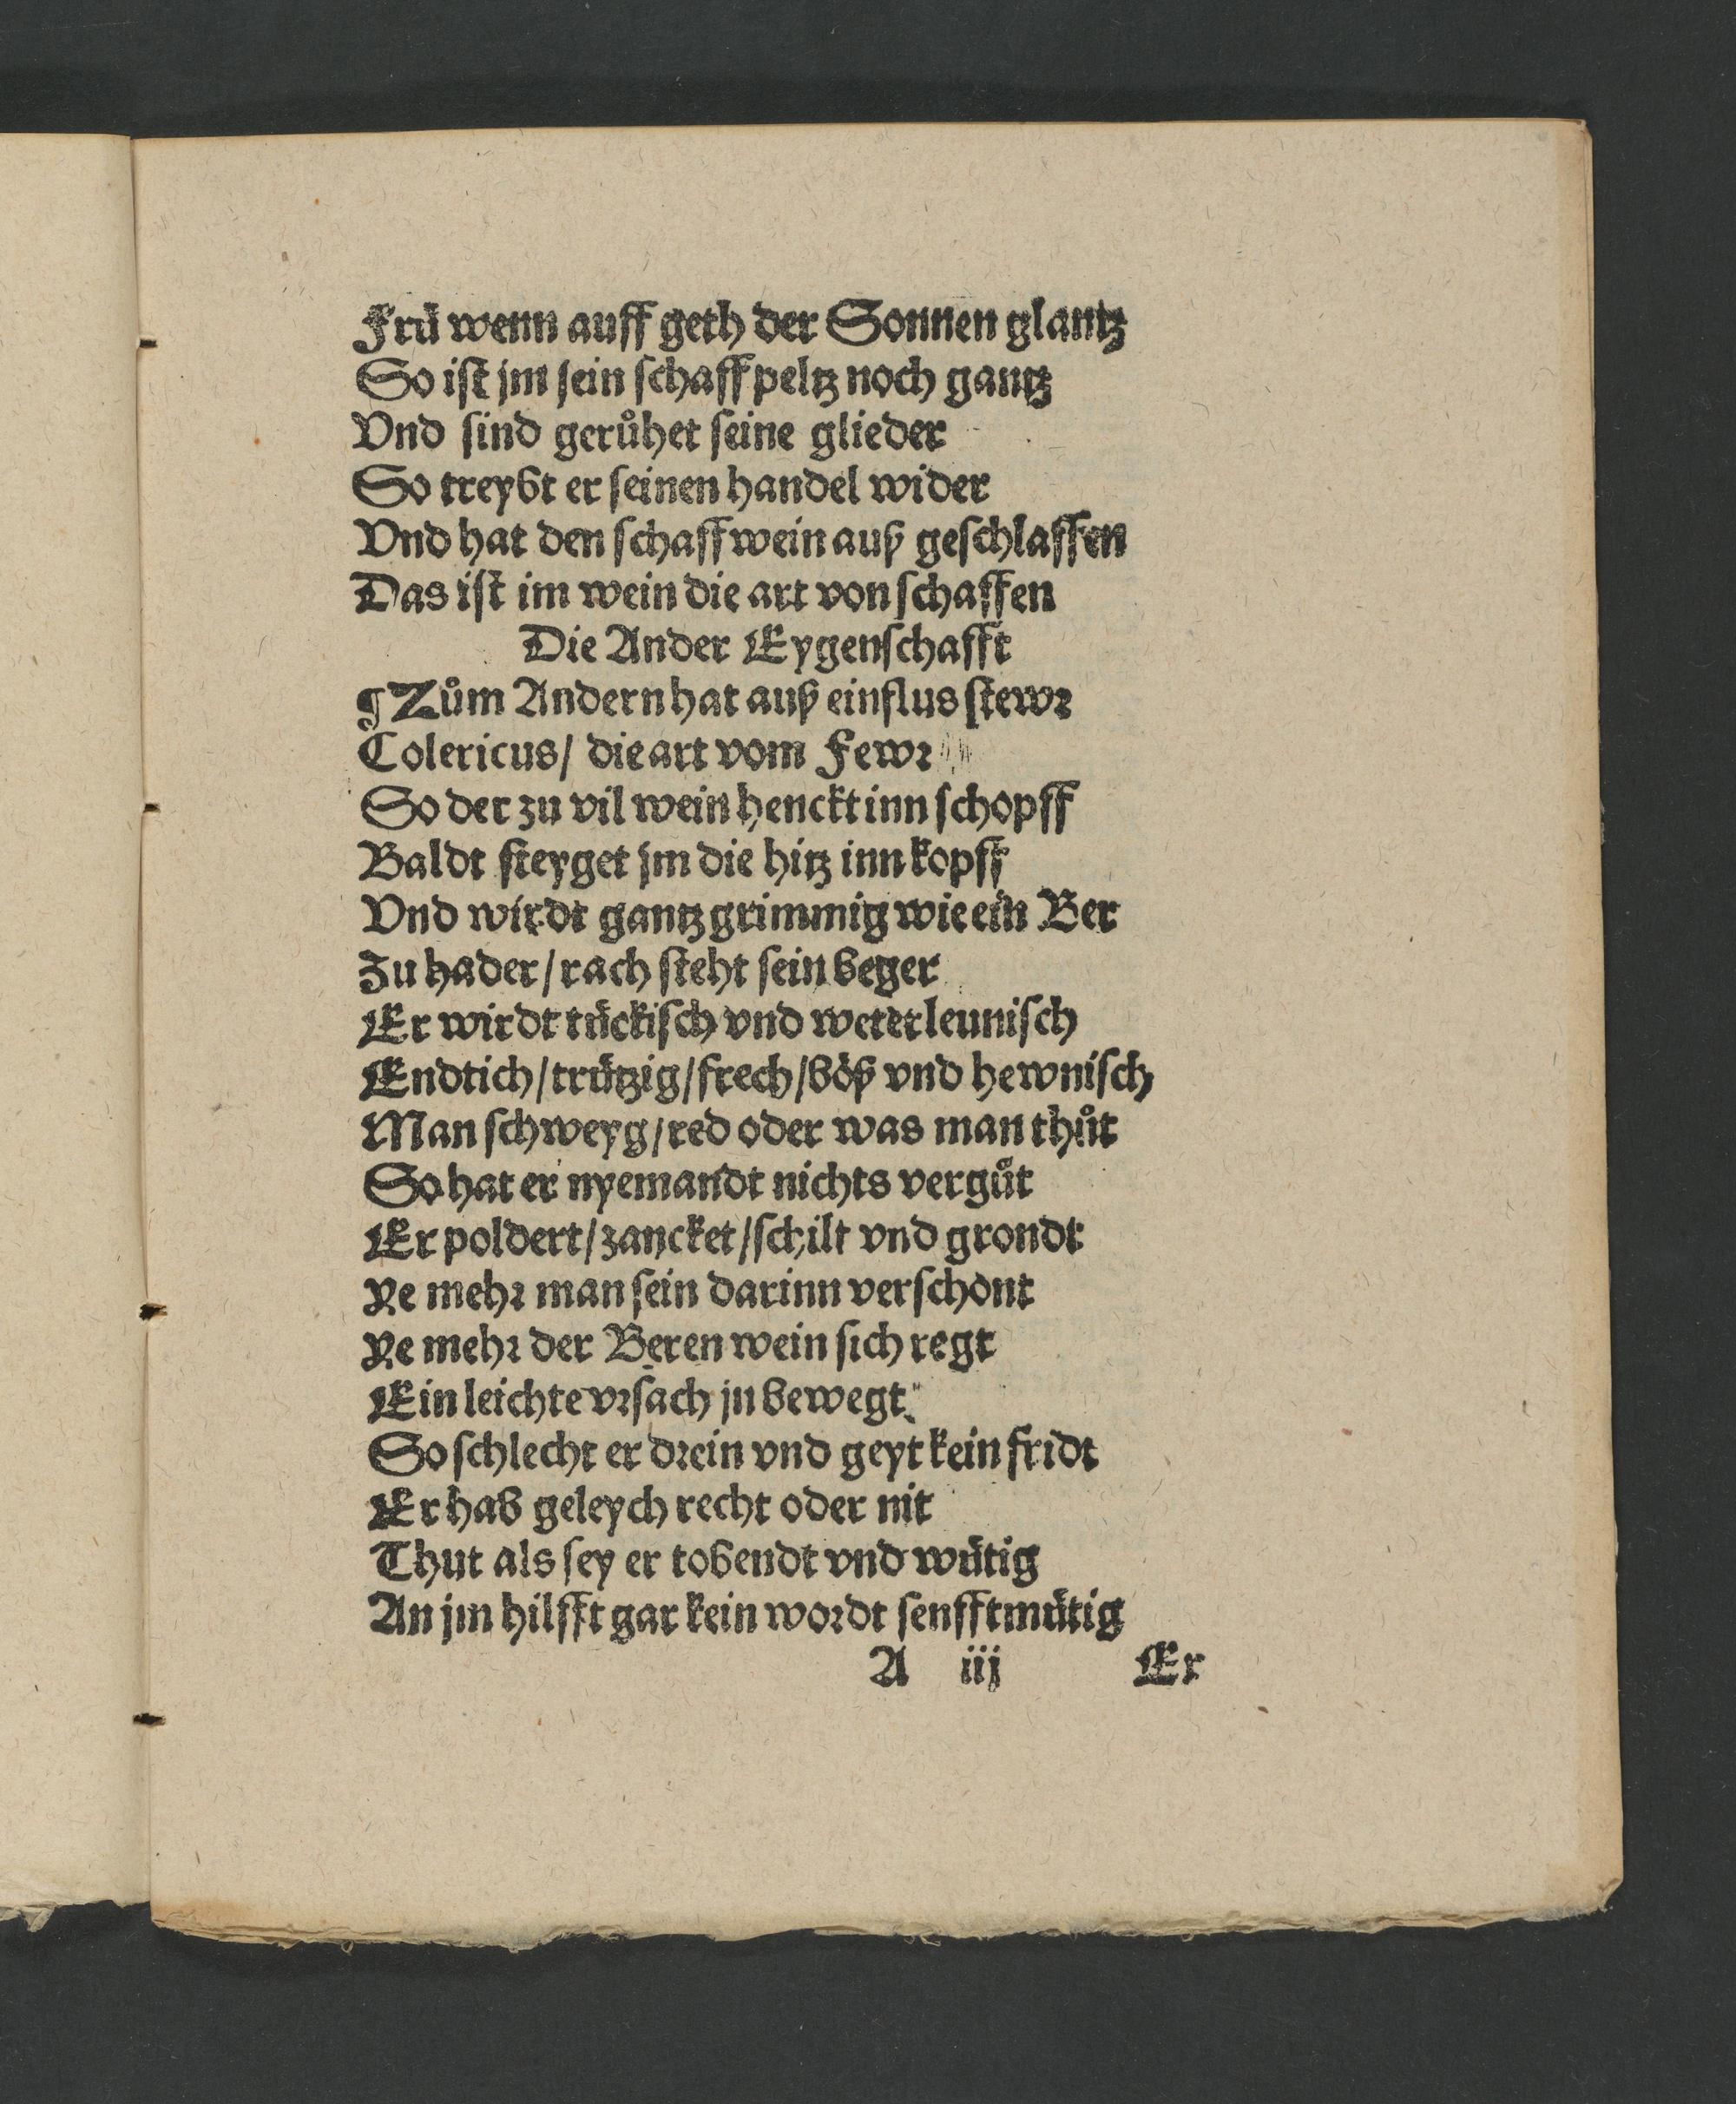 Frü wenn auff geth der Sonnen glantz
So ist jm sein schaff peltz noch gantz
Vnd sind gerůhet seine glieder
So treybt er seinen handel wider
Vnd hat den schaff wein auß geschlaffen
Das ist im wein die art von schaffen
Die Ander Eygenschafft
¶ Zům Andern hat auß einflus stewr
Colericus/ die art vom Fewr
So der zu vil wein henckt inn schopff
Baldt steyget jm die hitz inn kopff
Vnd wirdt gantz grimmig wie ein Ber
Zu hader/ rach steht sein beger
Er wirdt tückisch vnd weterleunisch
Endtich/ trützig/ frech/ böß vnd hewnisch
Man schweyg/ red oder was man thůt
So hat er nyemandt nichts vergůt
Er poldert/ zancket/ schilt vnd grondt
Ye mehr man sein darinn verschont
Ye mehr der Beren wein sich regt
Ein leichte vrsach jn bewegt.
So schlecht er drein vnd geyt kein fridt
Er hab geleych recht oder nit
Thut als sey er tobendt vnd wütig
An jm hilfft gar kein wordt senfftmütig
A iij Er